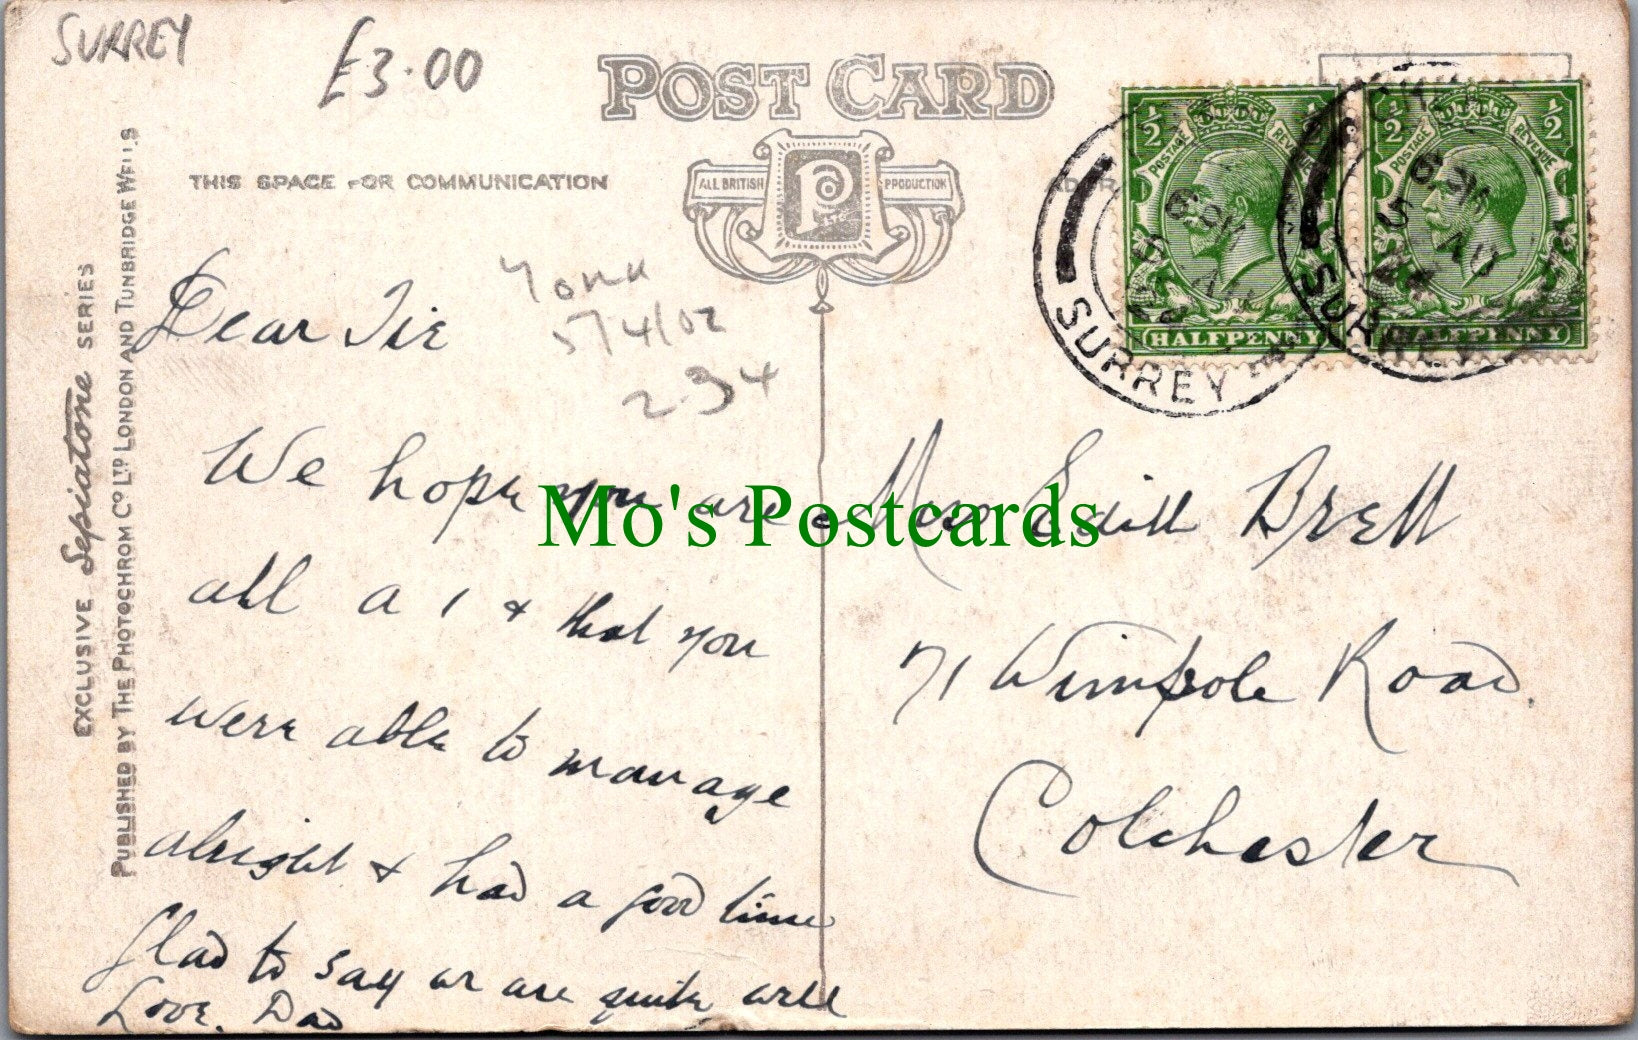 SURREY
£3.00
POST CARD
THIS SPACE FOR COMMUNICATION
ALL BRITISH PRODUCTION
P
ADDR
½ ½
POSTAGE REVENUE
HALFPENNY
½ ½
POSTAGE REVENUE
HALFPENNY
SURREY
SURREY
EXCLUSIVE Sepiatone SERIES
PUBLISHED BY THE PHOTOCHROM CO LTD LONDON AND TUNBRIDGE WELLS
York
5/4/02
2.34
Dear Tie
We hope you are
all a 1 + that you
were able to manage
alright + had a good time
Glad to say we are quite well
Love, Dad
Miss Edith Brett
71 Wimpole Road.
Colchester
Mo's Postcards